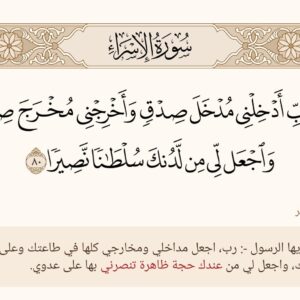 سُورَةُ الإِسْرَاء
أَدْخِلْنِي مُدْخَلَ صِدْقٍ وَأَخْرِجْنِي مُخْرَجَ
وَٱجْعَل لِّي مِن لَّدُنكَ سُلْطَٰنًا نَّصِيرًا ٨٠
الرسول -: رب، اجعل مداخلي ومخارجي كلها في طاعتك وعلى
واجعل لي من عندك حجة ظاهرة تنصرني بها على عدوي.